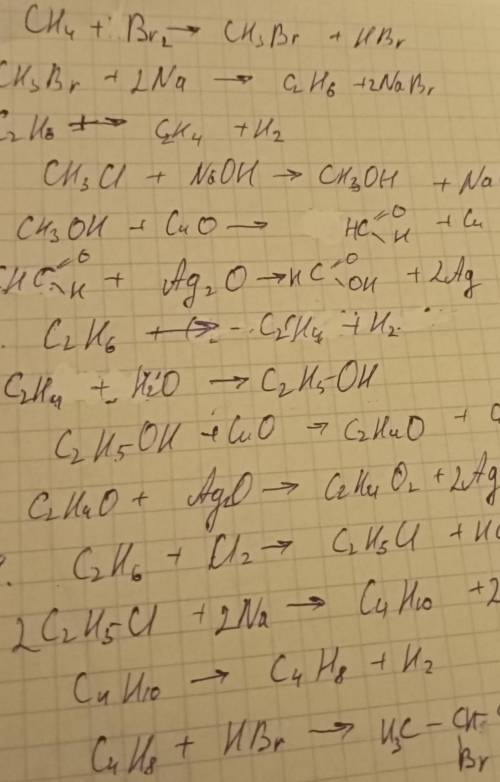 CH4 + Br2 → CH3Br + HBr
CH3Br + 2Na → C2H6 + 2NaBr
C2H6 → C2H4 + H2
CH3Cl + NaOH → CH3OH + Na
CH3OH + CuO → HC=O H + Cu
HC=O H + Ag2O → HC=O OH + 2Ag
C2H6 → C2H4 + H2
C2H4 + H2O → C2H5-OH
C2H5OH + CuO → C2H4O +
C2H4O + Ag2O → C2H4O2 + 2Ag
C2H6 + Cl2 → C2H5Cl + HC
2C2H5Cl + 2Na → C4H10 + 2
C4H10 → C4H8 + H2
C4H8 + HBr → H3C - CH -
Br